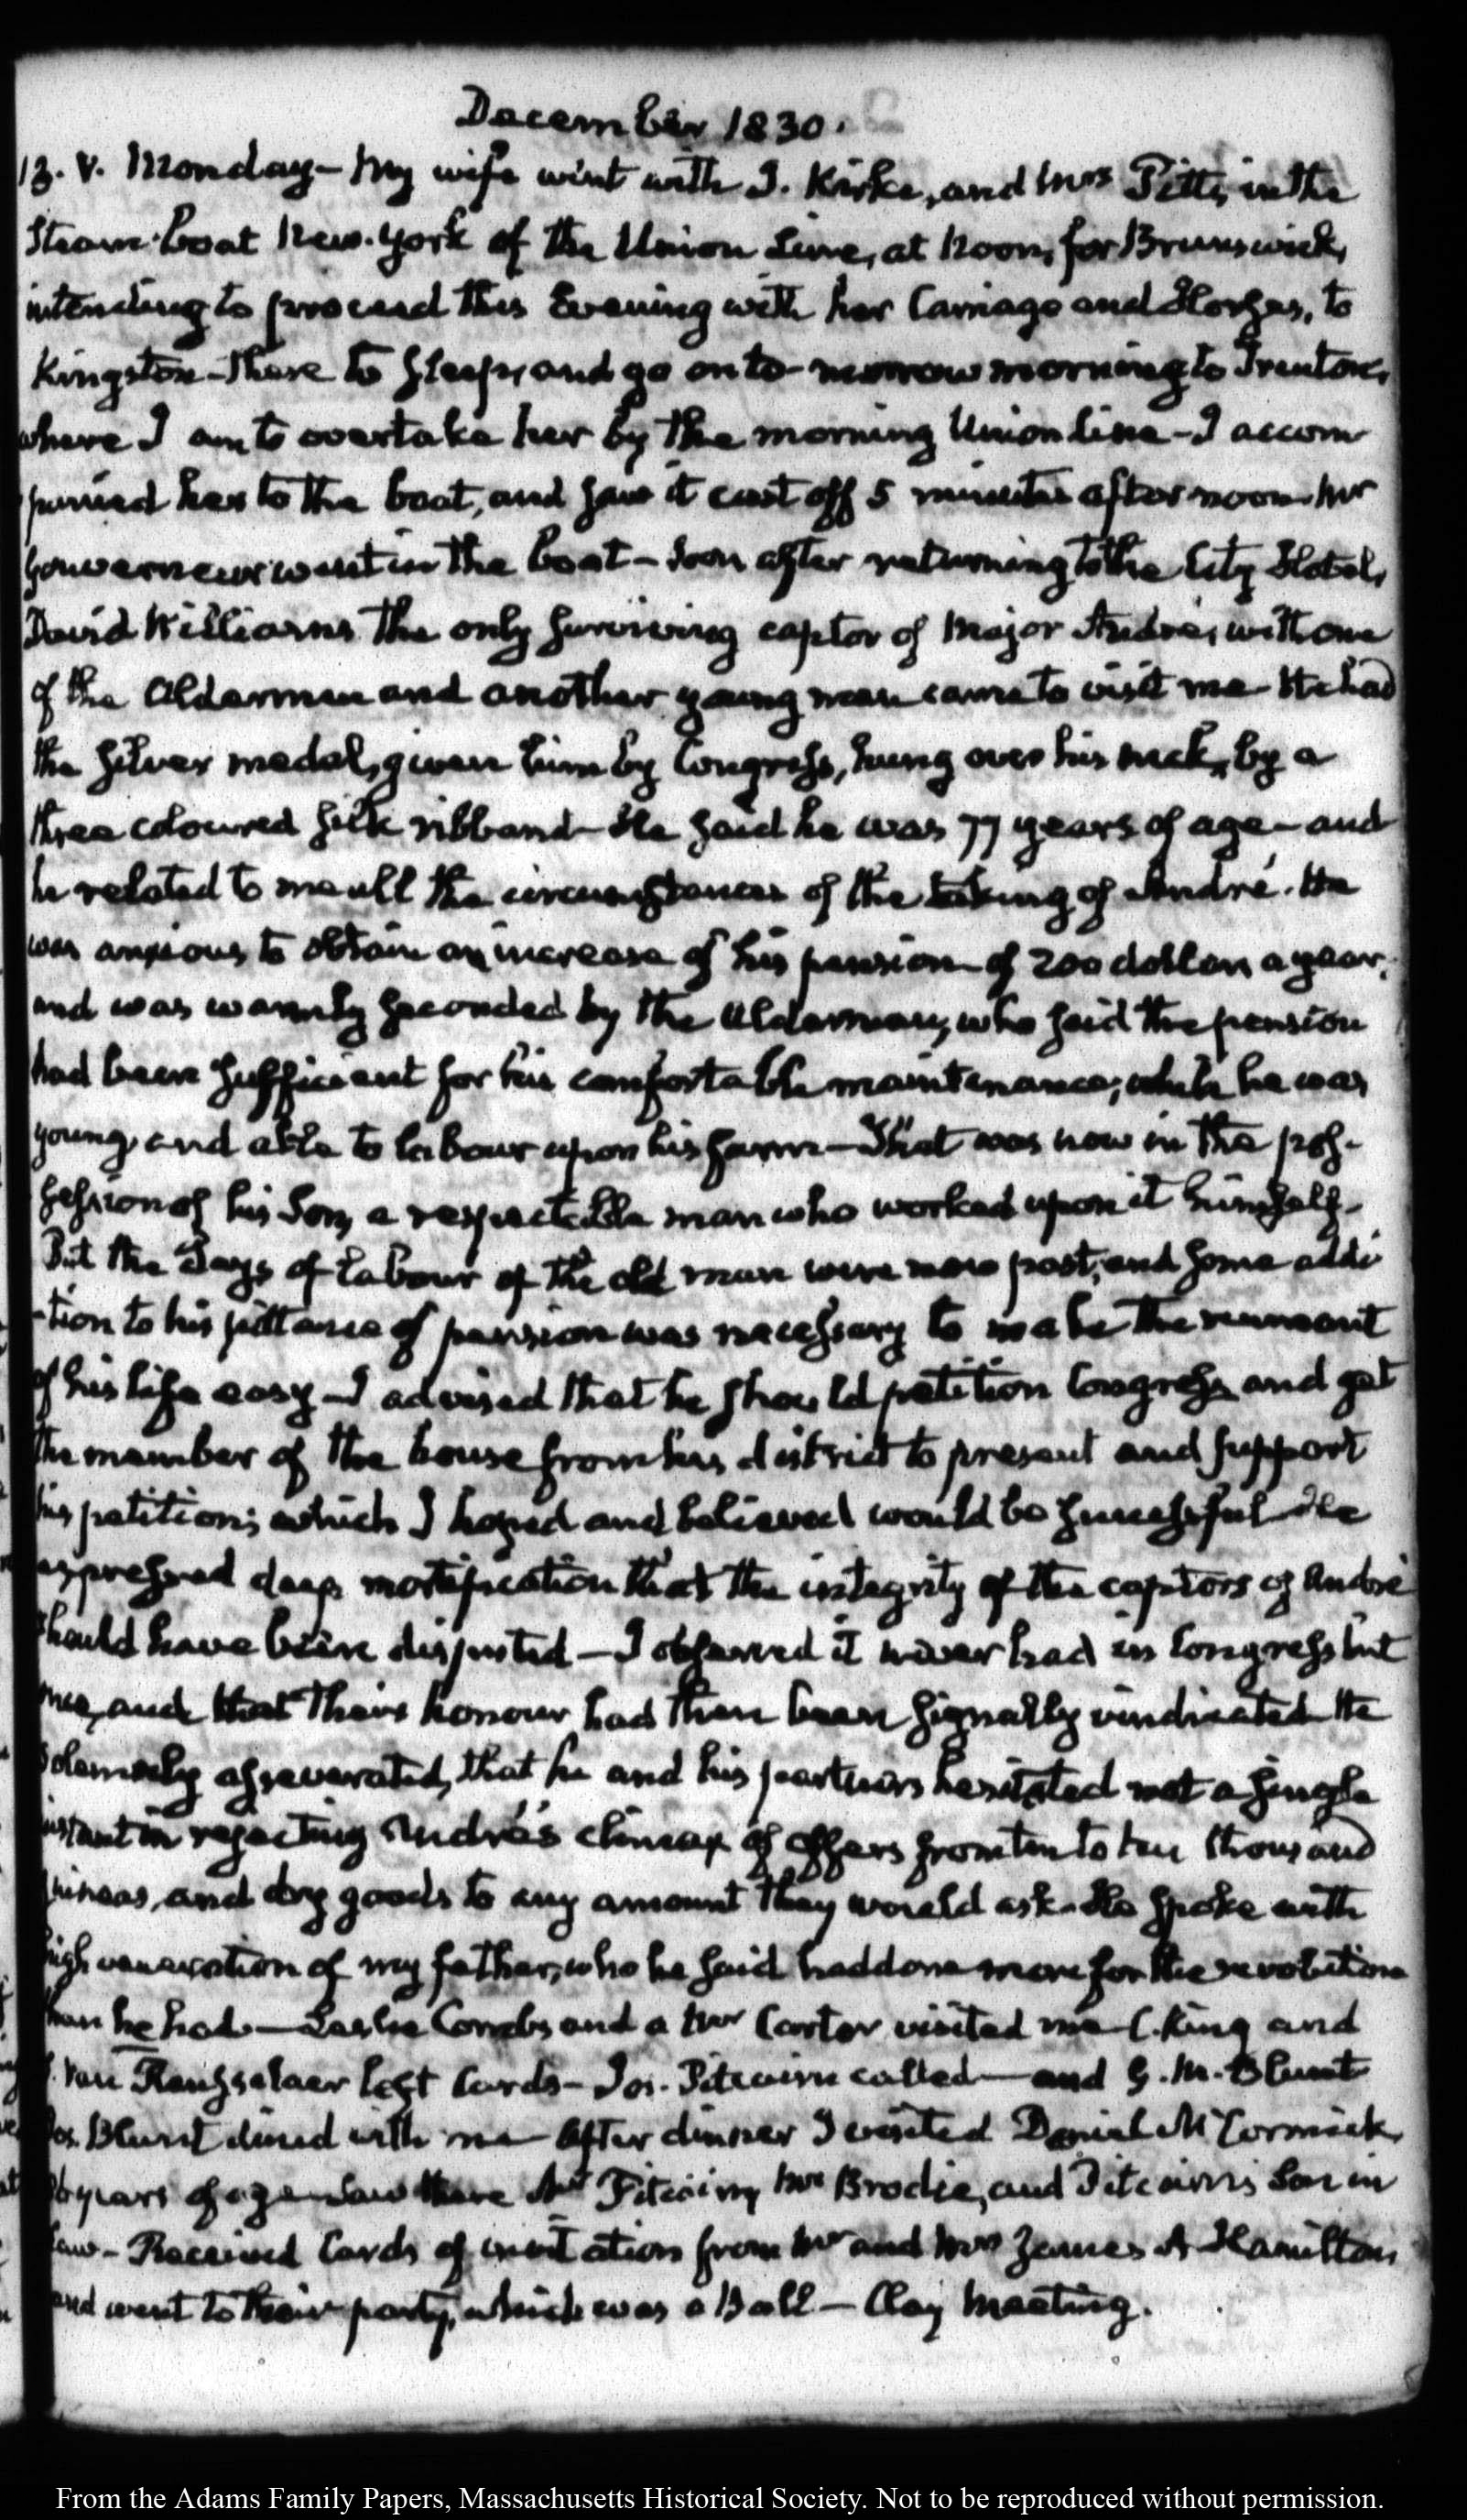 December 1830.
13. V. Monday – My wife went with I. Kirke, and Mrs Pitts, in the
Steam-boat New-York of the Union Line, at Noon, for Brunswick,
intending to proceed this Evening with her Carriage and Horses, to
Kingston – There to sleep, and go on to-morrow morning to Trenton,
where I am to overtake her by the morning Union line – I accom
panied her to the boat, and saw it cast off 5 minutes after noon Mr
Gouverneur went in the boat – Soon after returning to the City Hotel,
David Williams the only surviving captor of Major André, with one
of the Aldermen and another young man came to visit me – He had
the silver medal, given him by Congress, hung over his neck, by a
three coloured silk ribband – He said he was 77 years of age – and
he related to me all the circumstances of the taking of André. He
was anxious to obtain an increase of his pension of 200 dollars a year,
and was warmly seconded by the Alderman, who said the pension
had been sufficient for his comfortable maintenance, while he was
young, and able to labour upon his farm – That was now in the pos-
session of his Son, a respectable man who worked upon it himself –
But the days of labour of the old man were now past, and some addi
-tion to his pittance of pension was necessary to make the remnant
of his life easy – I advised that he should petition Congress and get
the member of the house from his district to present and support
his petition; which I hoped and believed would be successful – He
expressed deep mortification that the integrity of the captors of André
should have been disputed – I observed it never had in Congress but
once, and that their honour had then been signally vindicated – He
solemnly asseverated, that he and his partners hesitated not a single
instant in rejecting André's climax of offers from ten to ten thousand
guineas, and dry goods to any amount they would ask – He spoke with
high veneration of my father, who he said had done more for the revolution
than he had – Leslie Combs and a Mr Carter visited me – C. King and
Van Rensselaer left Cards – Jos. Pitcairn called – and G. M. Blunt
Jos. Blunt dined with me – After dinner I visited Daniel McCormick,
years of age – Saw there Pitcairn, Mr Brodie, and Pitcairn's Son in
law – Received Cards of invitation from Mr and Mrs James A Hamilton
and went to their party, which was a Ball – Clay Meeting.
From the Adams Family Papers, Massachusetts Historical Society. Not to be reproduced without permission.